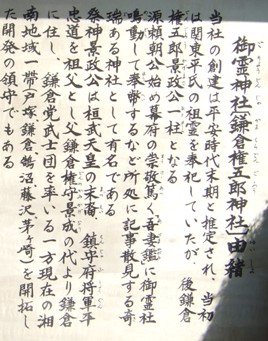 御霊神社(鎌倉権五郎神社)由緒
当社の創建は平安時代末期と推定され、当初
は関東平氏の祖霊を奉祀していたが、後鎌倉
権五郎景政公一柱となる
源頼朝公始め幕府の崇敬篤く吾妻鑑に御霊社
鳴動して奉幣するなど所処に記事散見する奇
瑞ある神社として有名である
祭神景政公は桓武天皇の末裔 鎮守府将軍平
忠道を祖父とし父鎌倉権守景成の代より鎌倉
に住し、鎌倉党武士団を率いる一方現在の湘
南地域一帯(戸塚、鎌倉、鵠沼、藤沢、茅ヶ崎)を開拓し
た開発の領守でもある